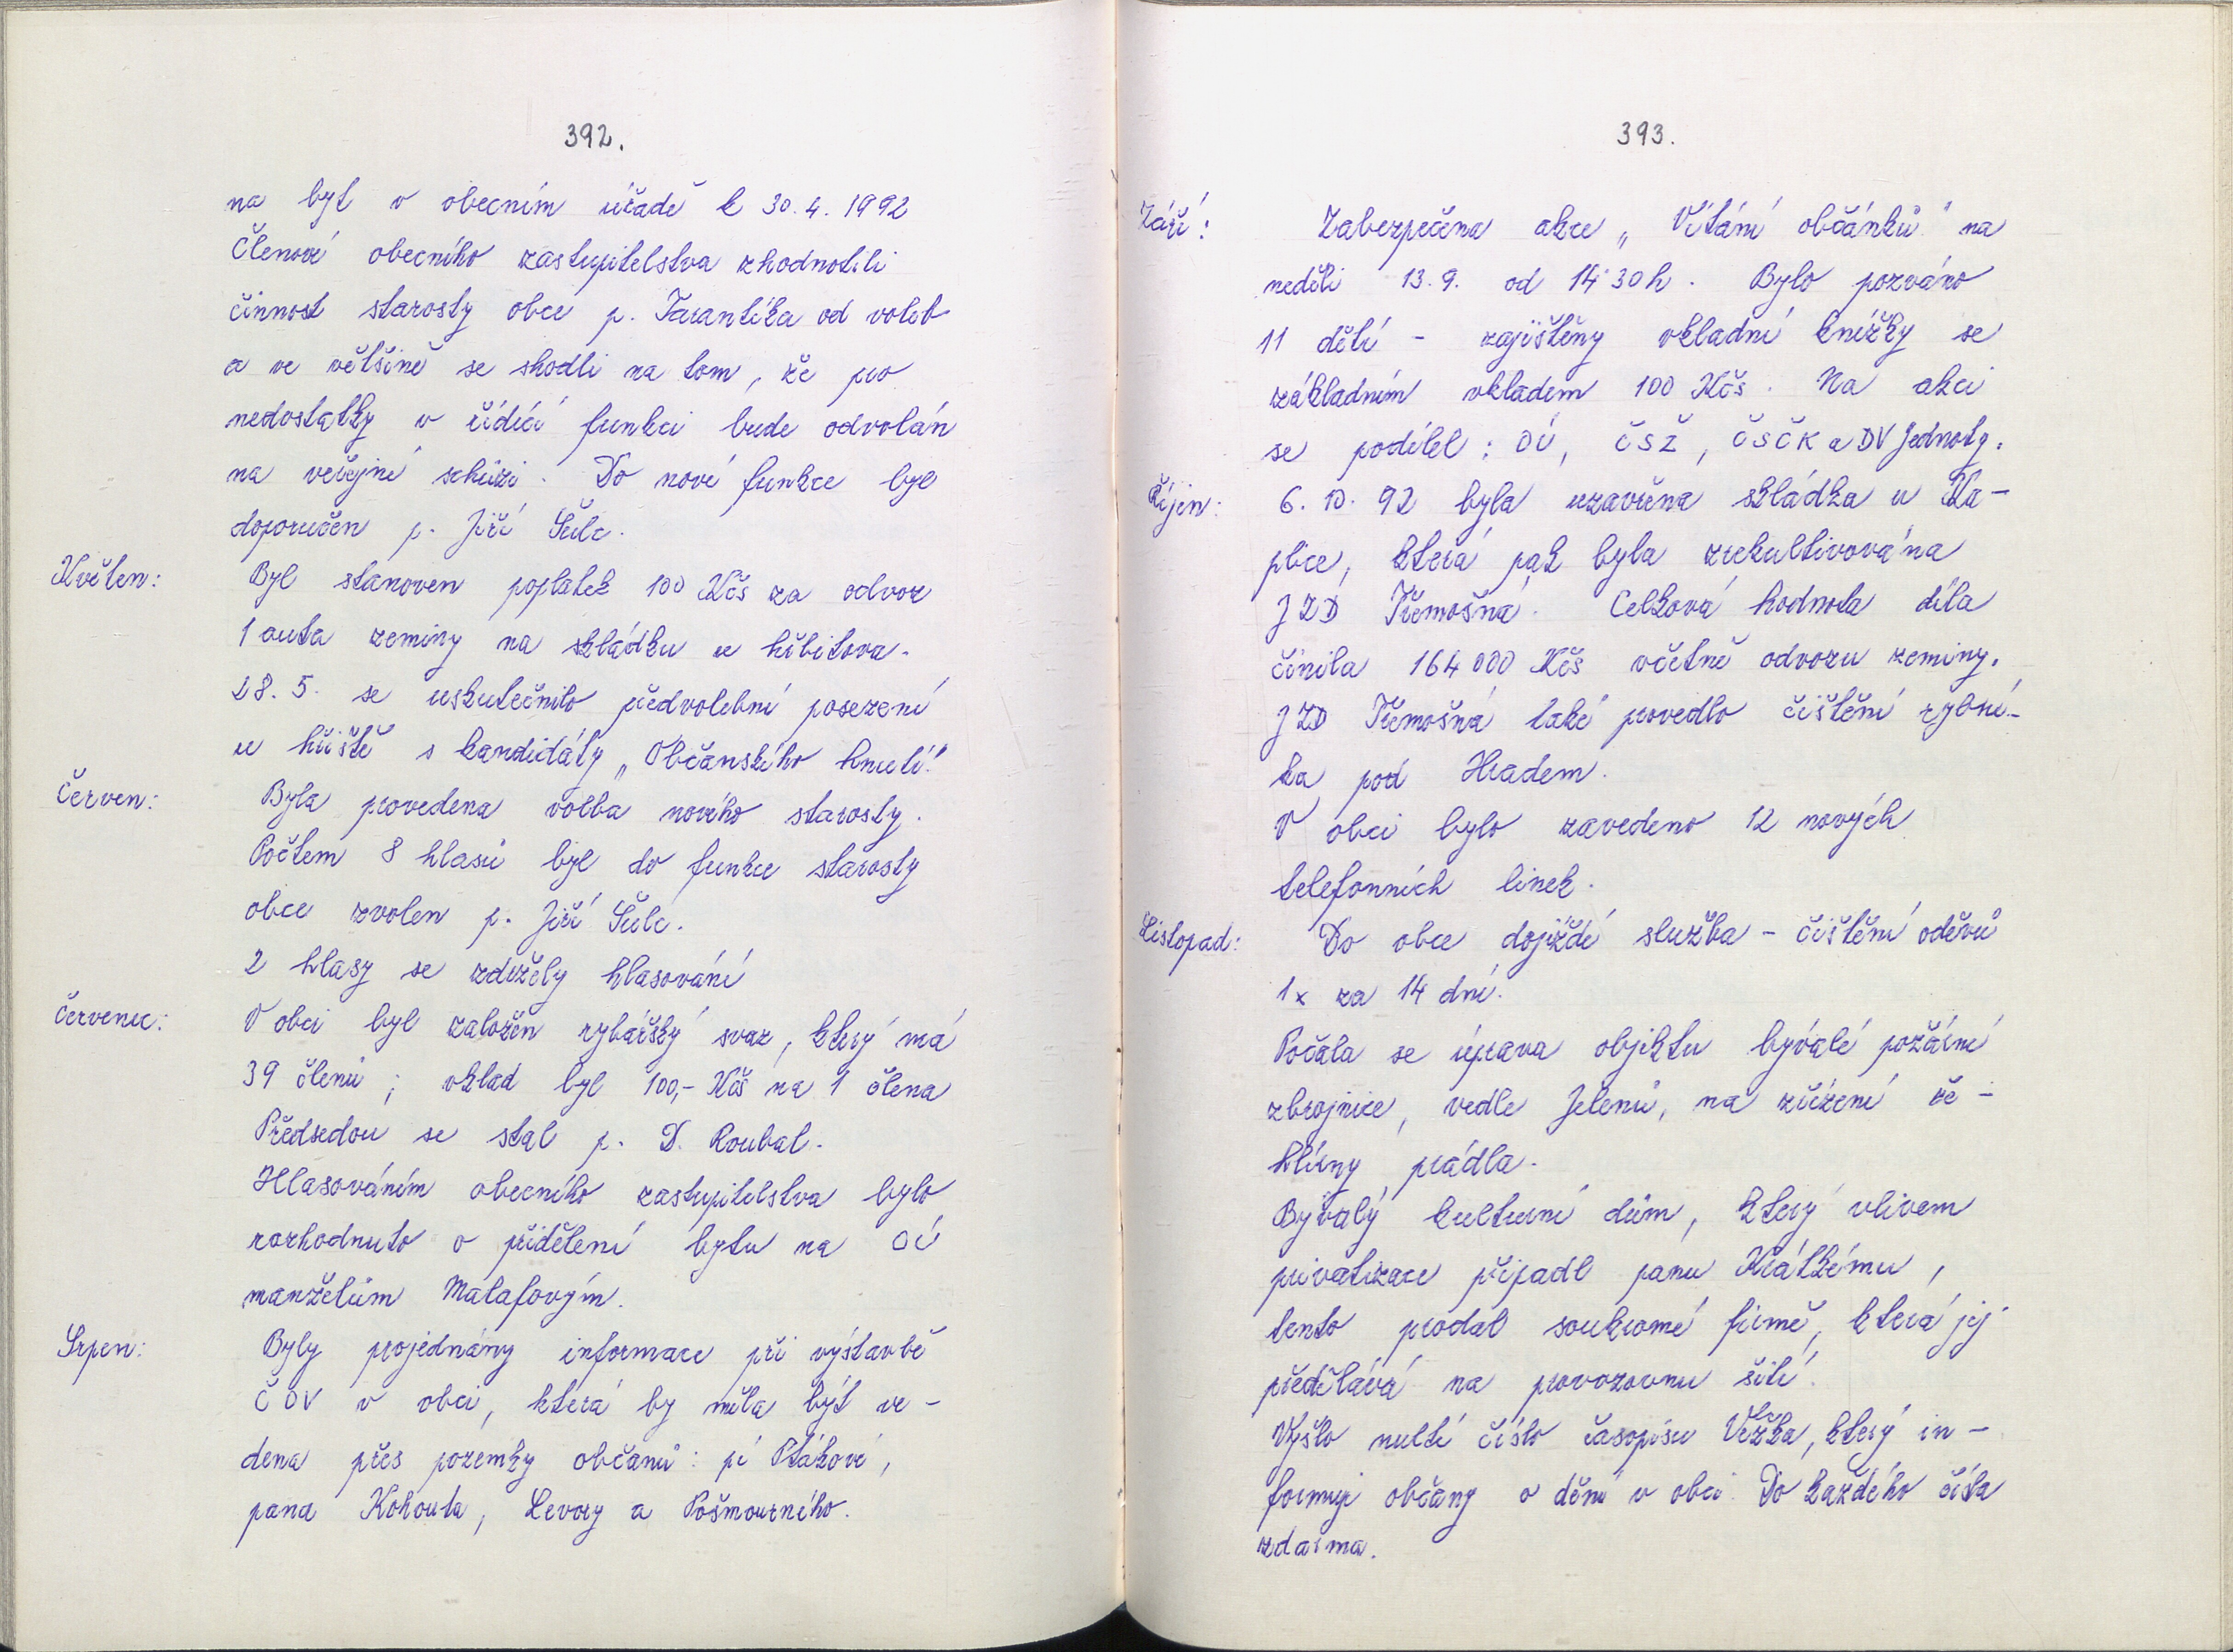 392.
na byt v obecním úřadě k 30.4. 1992
Členové obecního zastupitelstva zhodnotili
činnost starosty obce p. Tarantíka od voleb
a ve většině se shodli na tom, že pro
nedostatky v řídící funkci bude odvolán
na veřejné schůzi. Do nové funkce byl
doporučen p. Jiří Šulc.
Květen: Byl stanoven poplatek 100 Kčs za odvoz
1 auta zeminy na skládku u hřbitova.
28. 5. se uskutečnilo předvolební posezení
u hřiště s kandidáty „Občanského hnutí."
Červen: Byla provedena volba nového starosty.
Počtem 8 hlasů byl do funkce starosty
obce zvolen p. Jiří Šulc.
2 hlasy se zdržely hlasování
Červenec: V obci byl založen rybářský svaz, který má
39 členů; vklad byl 100,- Kčs na 1 člena
Předsedou se stal p. D. Roubal.
Hlasováním obecního zastupitelstva bylo
rozhodnuto o přidělení bytu na OÚ
manželům Malafovým.
Srpen: Byly projednány informace při výstavbě
ČOV v obci, která by měla být ve-
dena přes pozemky občanů: pí Ptákové,
pana Kohouta, Levory a Pošmourného.
393.
Září: Zabezpečena akce „Vítání občánků" na
neděli 13.9. od 14 30 h. Bylo pozváno
11 dětí - zajištěny vkladní knížky se
základním vkladem 100 Kčs. Na akci
se podílel: OÚ, ČSŽ, ČSČK a DV Jednoty.
Říjen: 6. 10. 92 byla uzavřena skládka u Ka-
plice, která pak byla zrekultivována
JZD Třemošná. Celková hodnota díla
činila 164 000 Kčs včetně odvozu zeminy.
JZD Třemošná také provedlo čištění rybní-
ka pod Hradem.
V obci bylo zavedeno 12 nových
telefonních linek.
Listopad: Do obce dojíždí služba - čištění oděvů
1x za 14 dní.
Počala se úprava objektu bývalé požární
zbrojnice, vedle Jelenů, na zřízení že-
hlírny prádla.
Bývalý kulturní dům, který vlivem
privatizace připadl panu Krátkému,
tento prodal soukromé firmě, která jej
předělává na provozovnu šití.
Vyšlo nulté číslo časopisu Věžka, který in-
formuje občany o dění v obci. Do každého čísla
zdarma.